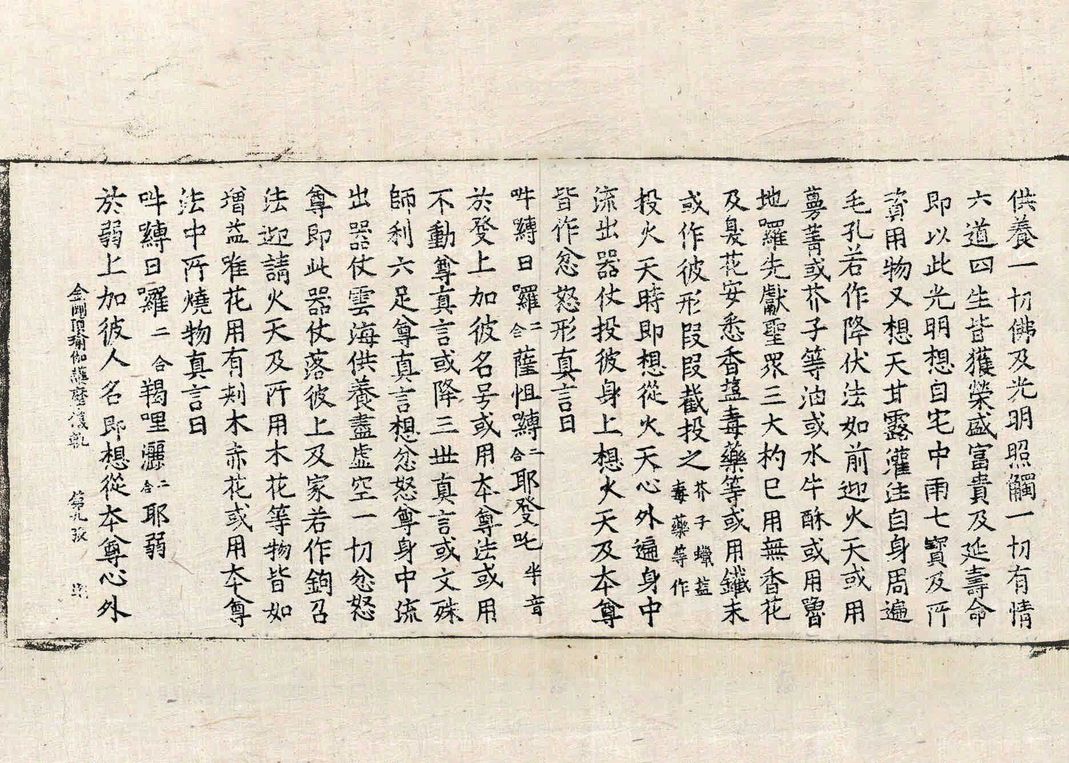 供養一切佛及光明照觸一切有情
六道四生皆獲榮盛富貴及延壽命
即以此光明想自宅中雨七寶及所
資用物又想天甘露灌注自身周遍
毛孔若作降伏法如前迎火天或用
蔓菁或芥子等油或水牛酥或用嚕
地囉先獻聖眾三大杓已用無香花
及臭花安悉香塩毒藥等或用鐵末
或作彼形段段截投之芥子蠟塩毒藥等作
投火天時即想從火天心外遍身中
流出器仗投彼身上想火天及本尊
皆作忿怒形真言曰
吽縛日囉二合薩怛縛二合耶發吒半音
於發上加彼名号或用本尊法或用
不動尊真言或降三世真言或文殊
師利六足尊真言想忿怒尊身中流
出器仗雲海供養盡虛空一切忿怒
尊即此器仗落彼上及家若作鉤召
法迎請火天及所用木花等物皆如
增益唯花用有刺木赤花或用本尊
法中所燒物真言曰
吽縛日囉二合羯哩灑二合耶弱
於弱上加彼人名即想從本尊心外
金剛頂瑜伽護摩儀軌 第九張